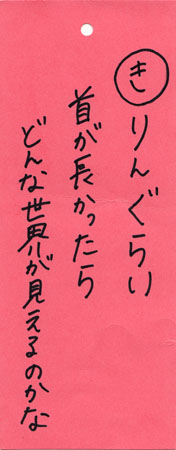 きりんぐらい
首が長かったら
どんな世界が見えるのかな